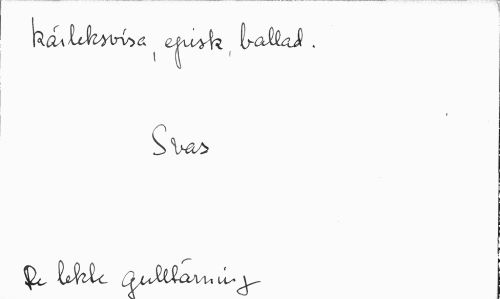 kärleksvisa, episk, ballad.
Svas
De lekte gulltärning